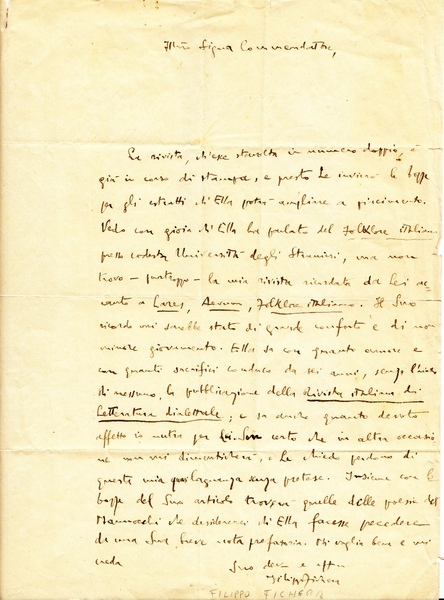 Ill.mo Signor Commendatore,
La rivista, ch'esce stavolta in numero doppio, è
già in corso di stampa, e presto Le invierò le bozze
per gli estratti ch'Ella potrà ampliare a piacimento.
Vedo con gioia ch'Ella ha parlato del Folklore italiano
presso codesta Università degli Stranieri, ma non
trovo - purtroppo - la mia rivista ricordata da Lei ac
canto a Lares, Aevum, Folklore italiano. Il Suo
ricordo mi sarebbe stato di grande conforto e di non
minore giovamento. Ella sa con quanto amore e
con quanti sacrifici conduco da sei anni, senza l'aiuto
di nessuno, la pubblicazione della Rivista italiana di
Letteratura dialettale; e sa anche quanto devoto
affetto io nutra per Lei. Son certo che in altra occasio
ne non mi dimenticherà, e Le chiedo perdono di
questa mia lagnanza senza pretese. Insieme con le
bozze del Suo articolo troverà quelle delle poesie del
che desidererei ch'Ella facesse precedere
da una Sua breve nota prefatoria. Mi voglia bene e mi
creda
Suo dev.mo e aff.mo
Filippo Fichera
FILIPPO FICHERA